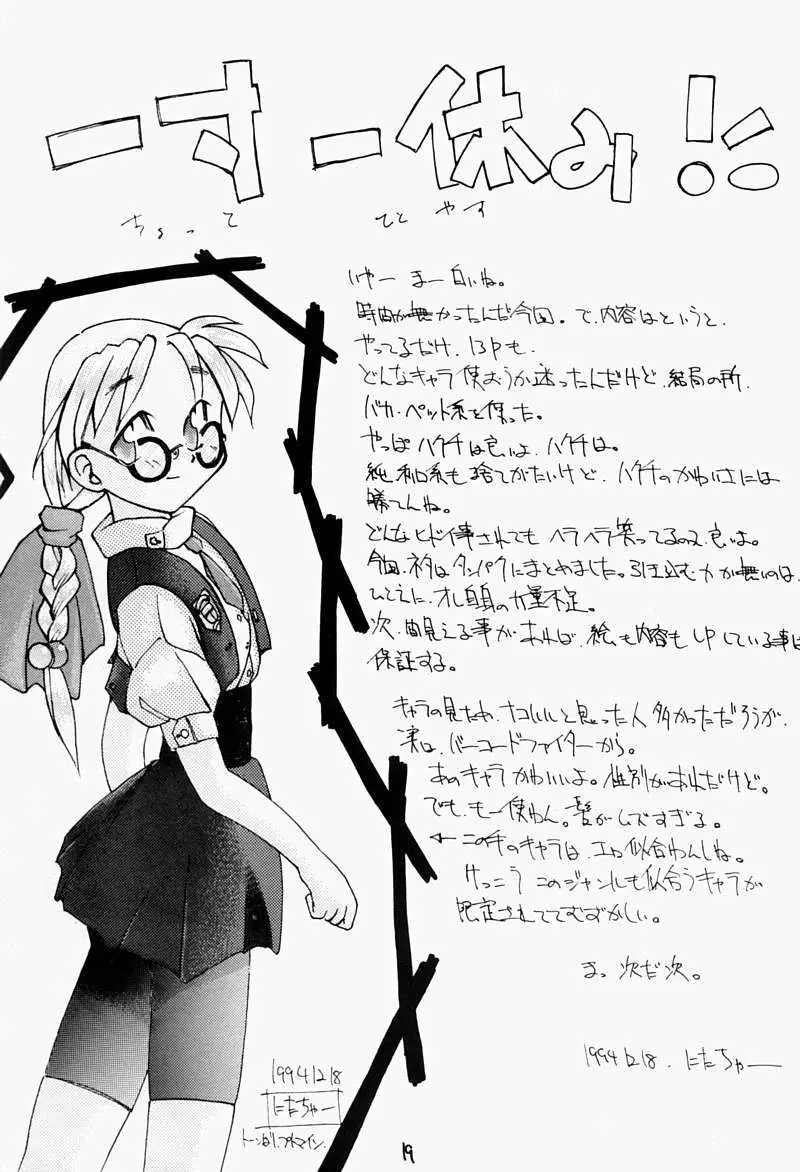 一寸一休み!!
ちょって ひと やす
いやー まー 白いね。
時間が無かったんだ今回。で、内容はというと、
やってるだけ、13Pも、
どんなキャラ使おうか迷ったんだけど、結局の所、
バカ・ペット系を使った。
やっぱハクチは良いよ、ハクチは。
純和系も捨てがたいけど、ハクチのかわいさには
勝てんね。
どんなヒドイ事されてもヘラヘラ笑ってるので、良いよ。
今回、ネタはタンパクにまとめました。引き込む力が無いのは、
ひとえに、オレ自身の力量不足。
次、由見える事があれば、絵も内容もUPしている事は
保証する。
キャラの見ため、ナコいいと思った人多かっただろうが、
実は、バーコードファイターから。
あのキャラかわいいよ。性別があれだけど。
でも、も一使わん。髪がムズすぎる。
←この手のキャラは、エロ似合わんしね。
けっこうこのジャンルも似合うキャラが
限定されててむずかしい。
まっ 次だ次。
1994 12 18. にたちゃー
1994 12 18
にたちゃー
19